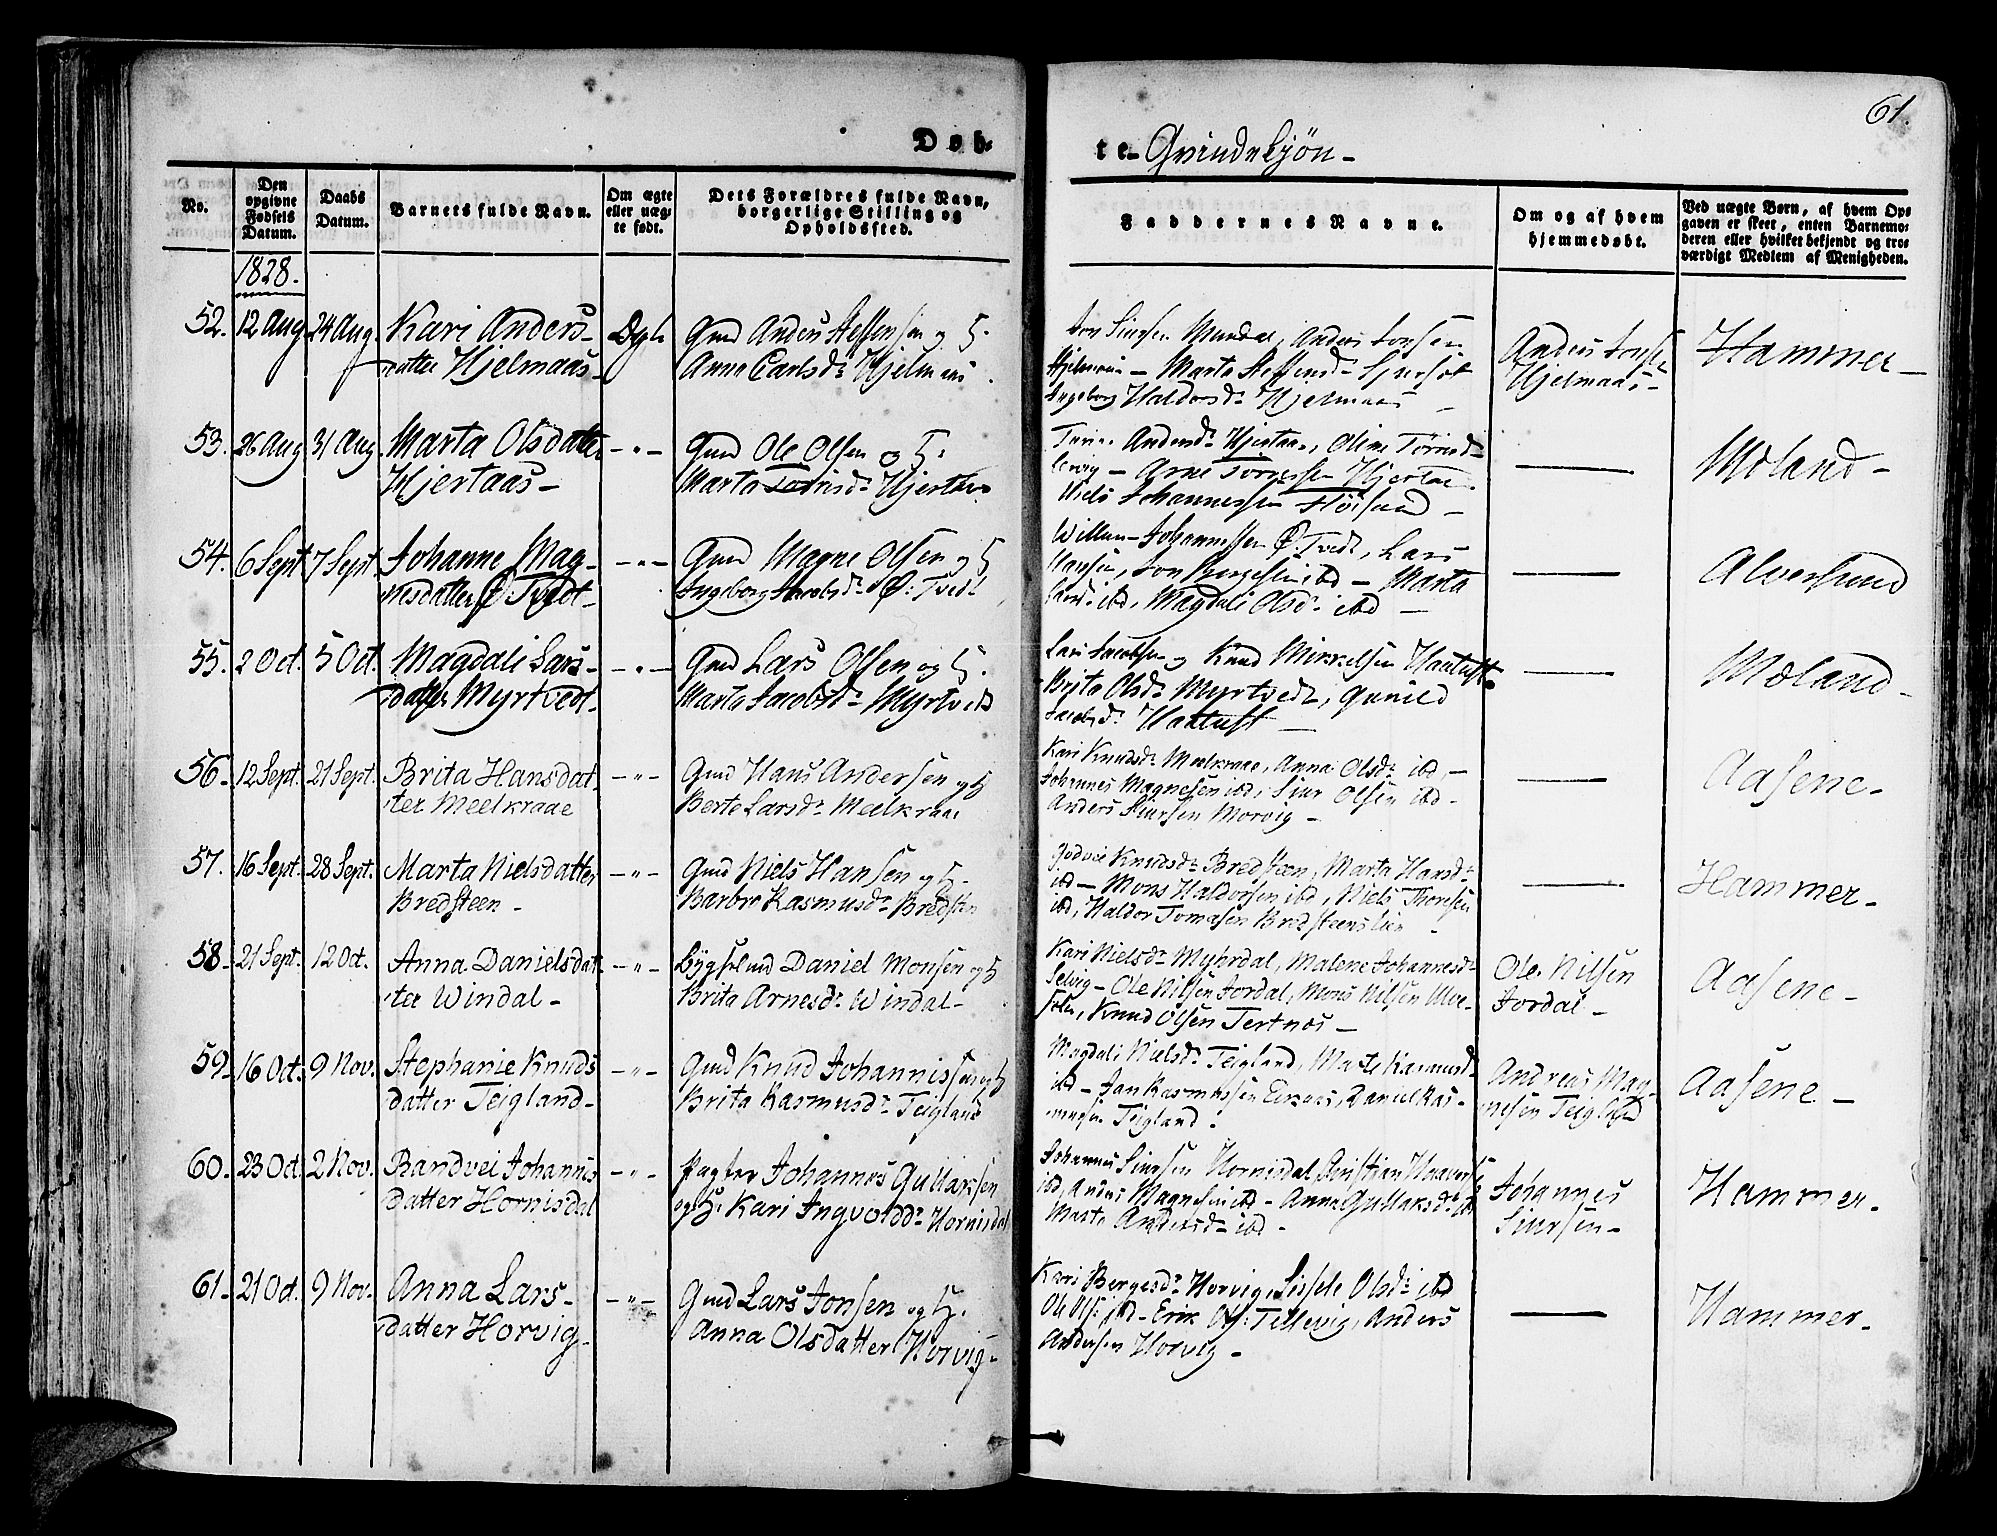 61.
Døb-
te- Qvindekjøn-
No.
Den opgivne Fødsels Datum.
Daabs Datum.
Barnets fulde Navn.
Om ægte eller uægte født.
Dets Forældres fulde Navn, borgerlige Stilling og Opholdssted.
Faddernes Navne.
Om og af hvem hjemmedøbt.
Ved uægte Børn, af hvem Opgaven er skeet, enten Barnemoderen eller hvilket bekjendt og troværdigt Medlem af Menigheden.
1828.
52. 12 Aug 24 Aug Kari Anders-
datter Hjelmaas-
Gmd Anders Steffensen og H.
Anna Carlsd. Hjelmaas
Jon Siursen Mundal, Anders Jonsen
Hjelmaas - Marta Steffensd.
Ingeborg Haldorsd. Hjelmaas -
Anders Jonsen
Hjelmaas-
Hammer-
53. 26 Aug 31 Aug Marta Olsdatter
Hjertaas-
-"-
Gmd Ole Olsen og H.
Marta Hjertaas
Andersd. Hjertaas,
- Arne Hjertaas.
Niels Johannessen -
Moland-
54. 6 Sept 7 Sept Johanne Mag-
nesdatter Ø: Tvedt-
-"-
Gmd Magne Olsen og H
Ingeborg Jacobsd. Ø: Tvedt
Willum Johannessen Ø: Tvedt, Lars
Hansen, Jon Børgesen ibd - Marta
ibd, Magdali Olsd. ibd -
Alversund
55. 2 Oct. 5 Oct. Magdali Lars-
datter Myrtvedt.
-"-
Gmd Lars Olsen og H.
Marta Jacobsd. Myrtvedt
Lars Jacobsen og Knud Mikkelsen Haatuft
Brita Olsd. Myrtvedt, Gunild
Jacobsd. Haatuft -
Moland-
56. 12 Sept. 21 Sept. Brita Hansdat-
ter Meelkraae
-"-
Gmd Hans Andersen og H
Berte Larsd. Meelkraae
Kari Knudsd. Meelkraae, Anna Olsd. ibd, -
Johannes Magnesen ibd, Siur Olsen ibd-
Anders Siursen Morvig -
Aasene-
57. 16 Sept. 28 Sept. Marta Nielsdatter
Bredsteen-
-"-
Gmd Niels Hansen og H.
Barbro Rasmusd. Bredsten
Knudsd. Bredsteen, Marta Hansd.
ibd - Mons Haldorsen ibd, Niels Thoresen
ibd, Haldor Tomasen Bredsteenslien -
Hammer-
58- 21 Sept. 12 Oct. Anna Danielsdat-
ter Windal-
-"-
Bygselmd Daniel Monsen og H
Brita Arnesd. Windal-
Kari Nielsd. Myhrdal, Malene Johannesd.
Selvig - Ole Nilsen Jordal, Mons Nilsen
Knud Olsen Tertnæs -
Ole Nilsen
Jordal-
Aasene-
59- 16 Oct. 9 Nov. Stephanie Knuds
datter Teigland-
-"-
Gmd Knud Johannissen og H
Brita Rasmusd. Teigland
Magdali Nielsd. Teigland, Marte Rasmusd.
ibd - Jan Rasmussen Daniel Ras-
musen Teigland.
Andreas Mag-
nesen Teigland
Aasene-
60. 23 Oct. 2 Nov. Randvei Johannis
datter Hornisdal
-"-
Pagter Johannes Gullaksen
og H: Kari Ingvoldd. Hornisdal
Johannes Siursen Hornisdal, Christian
ibd, Anders Magnesen ibd - Anna Gullaksd. ibd
Marta Andersd. ibd -
Johannes
Siursen-
Hammer-
61- 21 Oct. 9 Nov. Anna Lars-
datter Horvig-
-"-
Gmd Lars Jonsen og H.
Anna Olsdatter Horvig-
Kari Børgesd. Horvig, Sissele Olsd. ibd
Ole Ols: ibd - Erik Ols: Tellevig, Anders
Andersen Horvig -
Hammer-